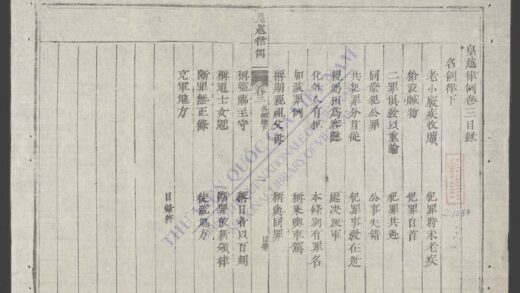 皇越律例卷三目錄
名例律下
老小廢疾收贖 犯罪時未老疾
給沒贓物 犯罪自首
二罪俱發以重論 犯罪共逃
同僚犯公罪 公事失錯
共犯罪分首從 犯罪事發在逃
親屬相為容隱 處決叛軍
化外人有犯 本條別有罪名
加減罪例 稱乘輿車駕
稱期親祖父母 稱與同罪
越律例 卷三
稱監臨主守 稱日者以百刻
稱道士女冠 斷罪依新頒律
斷罪無正條 徒流地方
充軍地方
目錄終
THƯ VIỆN QUỐC GIA VIỆT NAM
NATIONAL LIBRARY OF VIETNAM